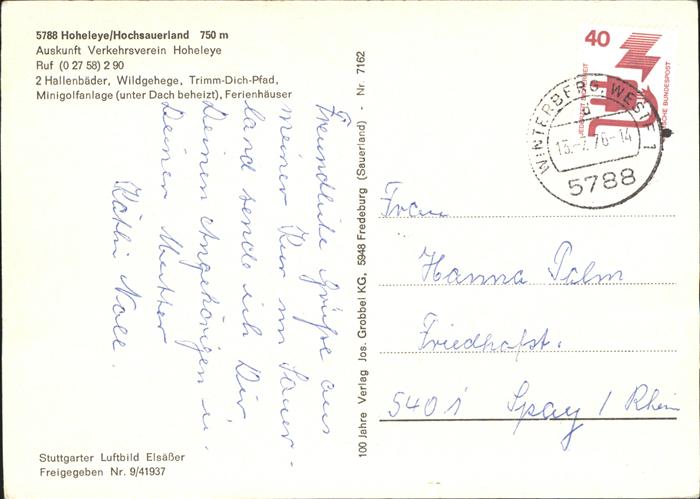 5788 Hoheleye/Hochsauerland 750 m
Auskunft Verkehrsverein Hoheleye
Ruf (0 27 58) 2 90
2 Hallenbäder, Wildgehege, Trimm-Dich-Pfad,
Minigolfanlage (unter Dach beheizt), Ferienhäuser
Freundliche Grüße aus
meiner Kur im Sauer-
land sende ich Dir
Deinen Angehörigen u.
Deiner Mutter
Käthi Noll.
Stuttgarter Luftbild Elsäßer
Freigegeben Nr. 9/41937
100 Jahre Verlag Jos. Grobbel KG, 5948 Fredeburg (Sauerland) - Nr. 7162
40
JEDERZEIT SICHERHEIT
DEUTSCHE BUNDESPOST
WINTERBERG, WESTF 1
15.-7.76-14
5788
Frau
Hanna Palm
Friedhofst.
5401 Spay / Rhein